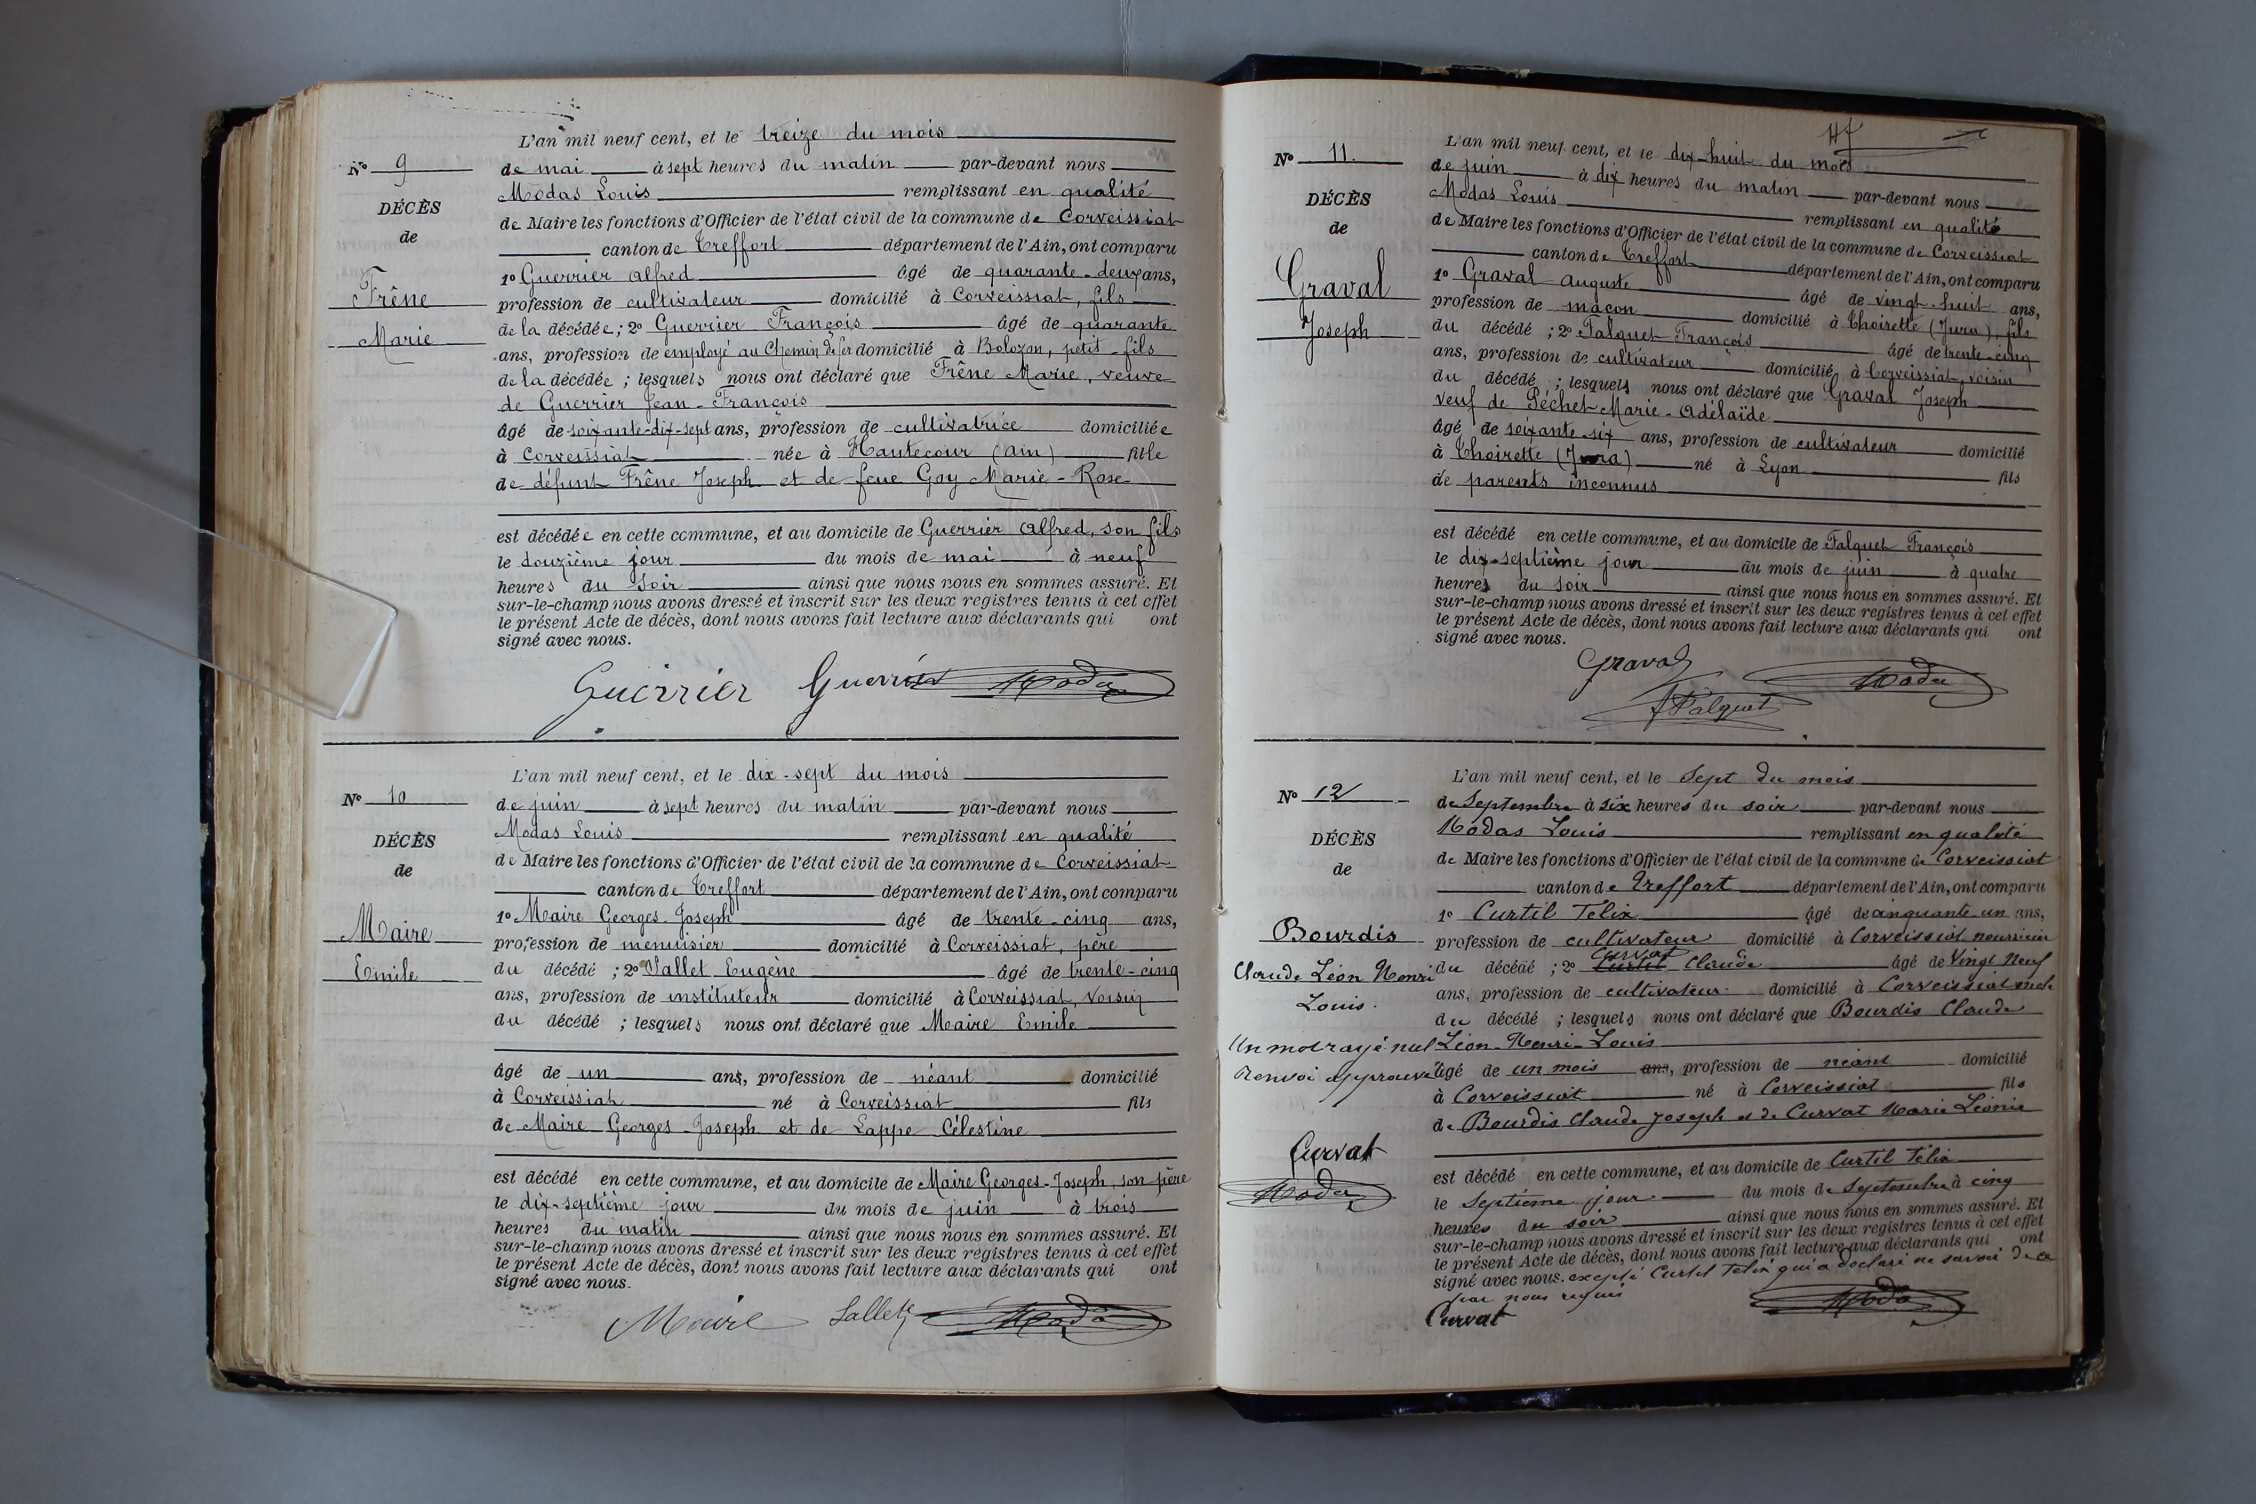 L'an mil neuf cent, et le treize du mois
N° 9
de mai à sept heures du matin par-devant nous
Modas Louis remplissant en qualité
DÉCÈS
de Maire les fonctions d'Officier de l'état civil de la commune de Corveissiat
de
canton de Treffort département de l'Ain, ont comparu
1° Guerrier Alfred âgé de quarante-deux ans,
Frêne
profession de cultivateur domicilié à Corveissiat, fils
de la décédée ; 2° Guerrier François âgé de quarante
Marie
ans, profession de employé au Chemin de fer domicilié à Bolozon, petit-fils
de la décédée ; lesquels nous ont déclaré que Frêne Marie, veuve
de Guerrier Jean-François
âgé de soixante-dix-sept ans, profession de cultivatrice domiciliée
à Corveissiat née à Hautecour (Ain) fille
de défunt Frêne Joseph et de feue Goy Marie-Rose
est décédée en cette commune, et au domicile de Guerrier Alfred, son fils
le douzième jour du mois de mai à neuf
heures du soir ainsi que nous nous en sommes assuré. Et
sur-le-champ nous avons dressé et inscrit sur les deux registres tenus à cet effet
le présent Acte de décès, dont nous avons fait lecture aux déclarants qui ont
signé avec nous.
Guerrier Guerrier Modas
L'an mil neuf cent, et le dix-sept du mois
N° 10
de juin à sept heures du matin par-devant nous
Modas Louis remplissant en qualité
DÉCÈS
de Maire les fonctions d'Officier de l'état civil de la commune de Corveissiat
de
canton de Treffort département de l'Ain, ont comparu
1° Maire Georges-Joseph âgé de trente-cinq ans,
Maire
profession de menuisier domicilié à Corveissiat, père
Emile
du décédé ; 2° Sallet Eugène âgé de trente-cinq
ans, profession de instituteur domicilié à Corveissiat, voisin
du décédé ; lesquels nous ont déclaré que Maire Emile
âgé de un ans, profession de néant domicilié
à Corveissiat né à Corveissiat fils
de Maire Georges-Joseph et de Lappe Célestine
est décédé en cette commune, et au domicile de Maire Georges-Joseph, son père
le dix-septième jour du mois de juin à trois
heures du matin ainsi que nous nous en sommes assuré. Et
sur-le-champ nous avons dressé et inscrit sur les deux registres tenus à cet effet
le présent Acte de décès, dont nous avons fait lecture aux déclarants qui ont
signé avec nous.
Maire Sallet Modas
L'an mil neuf cent, et le dix-huit du mois
N° 11.
de juin à dix heures du matin par-devant nous
Modas Louis remplissant en qualité
DÉCÈS
de Maire les fonctions d'Officier de l'état civil de la commune de Corveissiat
de
canton de Treffort département de l'Ain, ont comparu
1° Graval Auguste âgé de vingt-huit ans,
Graval
profession de maçon domicilié à Thoirette (Jura), fils
Joseph
du décédé ; 2° Falquet François âgé de trente-cinq
ans, profession de cultivateur domicilié à Corveissiat, voisin
du décédé ; lesquels nous ont déclaré que Graval Joseph
veuf de Péchet Marie-Adélaïde
âgé de soixante-six ans, profession de cultivateur domicilié
à Thoirette (Jura) né à Lyon fils
de parents inconnus
est décédé en cette commune, et au domicile de Falquet François
le dix-septième jour du mois de juin à quatre
heures du soir ainsi que nous nous en sommes assuré. Et
sur-le-champ nous avons dressé et inscrit sur les deux registres tenus à cet effet
le présent Acte de décès, dont nous avons fait lecture aux déclarants qui ont
signé avec nous.
Graval Modas
F Falquet
L'an mil neuf cent, et le Sept du mois
N° 12
de Septembre à six heures du soir par-devant nous
Modas Louis remplissant en qualité
DÉCÈS
de Maire les fonctions d'Officier de l'état civil de la commune de Corveissiat
de
canton de Treffort département de l'Ain, ont comparu
1° Curtil Félix âgé de cinquante un ans,
Bourdis
profession de cultivateur domicilié à Corveissiat nourricier
Curvat
Claude Léon Henri
du décédé ; 2° Curtil Claude âgé de Vingt Neuf
Louis.
ans, profession de cultivateur domicilié à Corveissiat oncle
du décédé ; lesquels nous ont déclaré que Bourdis Claude
Un mot rayé nul
Léon-Henri-Louis
Renvoi approuvé
âgé de un mois ans, profession de néant domicilié
à Corveissiat né à Corveissiat fils
de Bourdis Claude Joseph et de Curvat Marie Léonie
Curvat
Modas
est décédé en cette commune, et au domicile de Curtil Félix
le Septième jour du mois de Septembre à cinq
heures du soir ainsi que nous nous en sommes assuré. Et
sur-le-champ nous avons dressé et inscrit sur les deux registres tenus à cet effet
le présent Acte de décès, dont nous avons fait lecture aux déclarants qui ont
signé avec nous. excepté Curtil Félix qui a déclaré ne savoir de ce
par nous requis
Curvat Modas